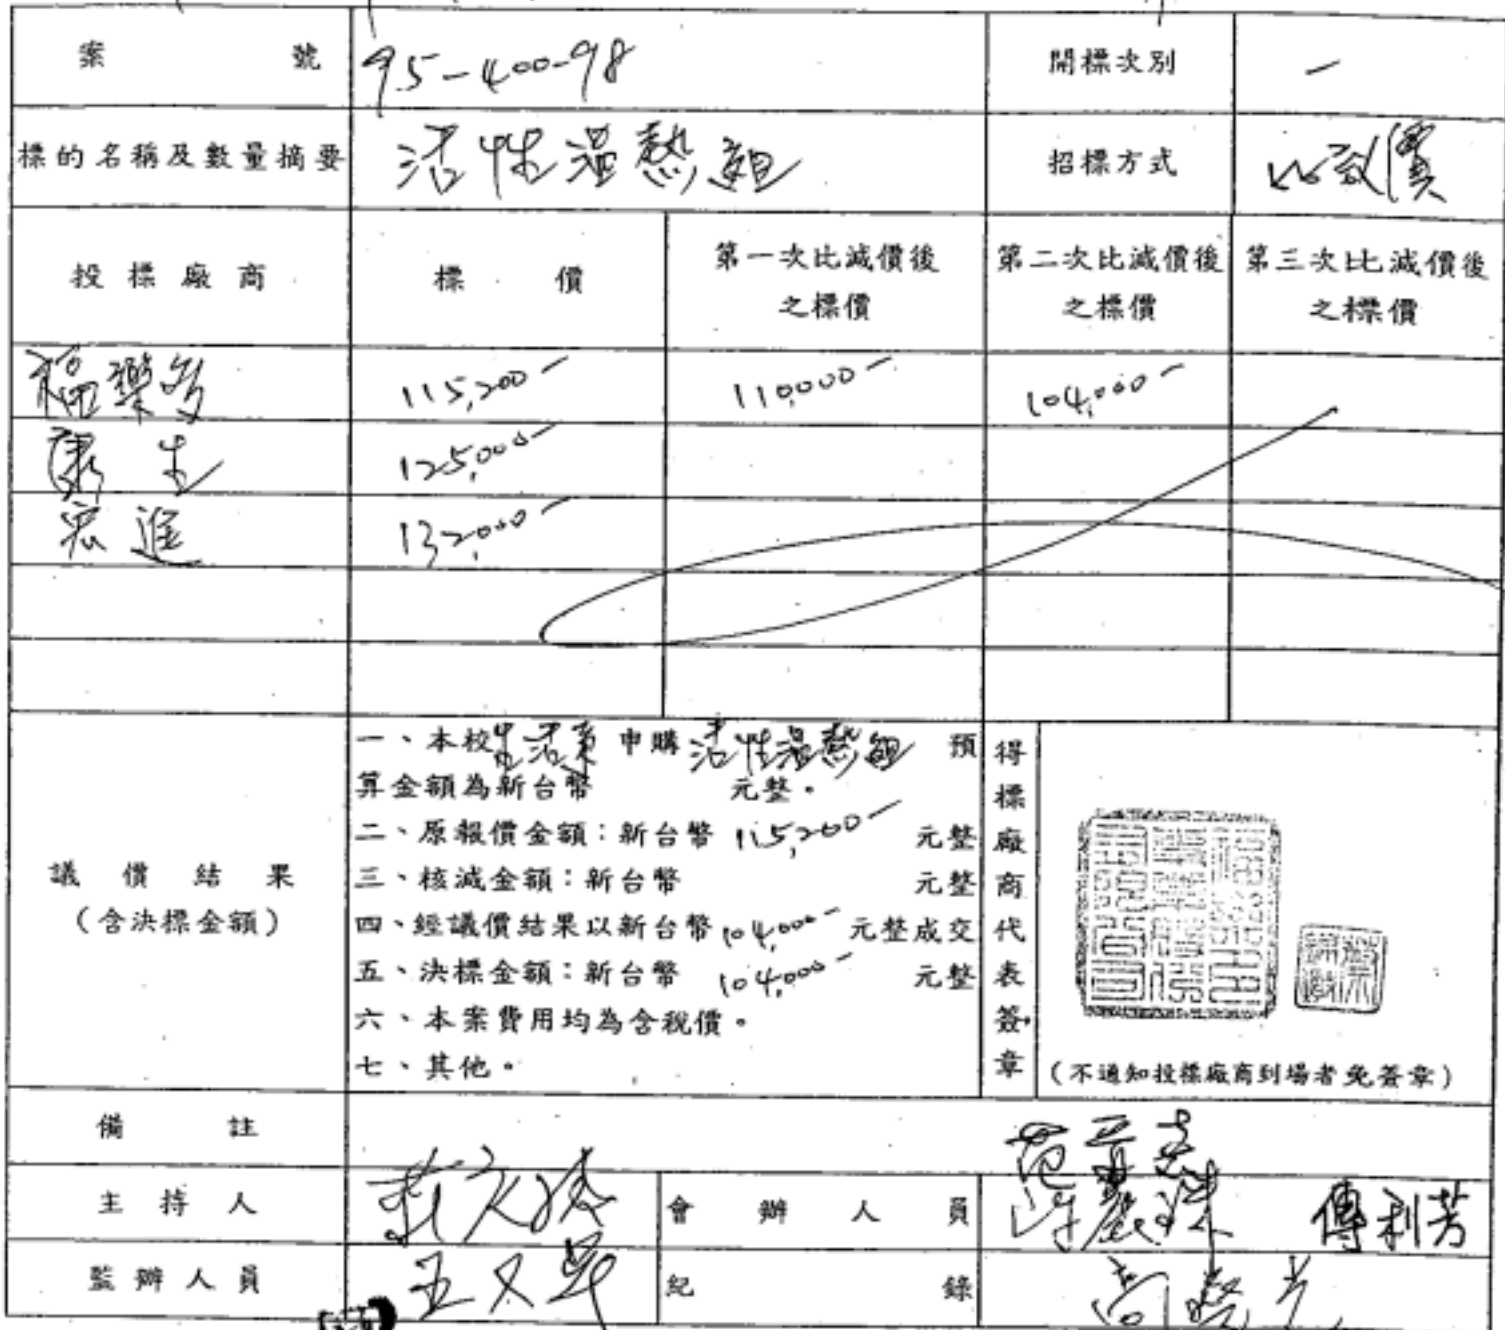 案號 95-400-98 開標次別 一
標的名稱及數量摘要 活性溫熱組 招標方式 比議價
投標廠商 標價 第一次比減價後之標價 第二次比減價後之標價 第三次比減價後之標價
福樂多 115,200- 110,000- 104,000-
康生 125,000-
宏進 132,000-
議價結果
(含決標金額)
一、本校 申購 活性溫熱組 預
算金額為新台幣 元整。
二、原報價金額：新台幣 115,200- 元整
三、核減金額：新台幣 元整
四、經議價結果以新台幣 104,000- 元整成交
五、決標金額：新台幣 104,000- 元整
六、本案費用均為含稅價。
七、其他。
得標廠商代表簽章
(不通知投標廠商到場者免簽章)
備註
主持人 會辦人員 傅利芳
監辦人員 紀錄